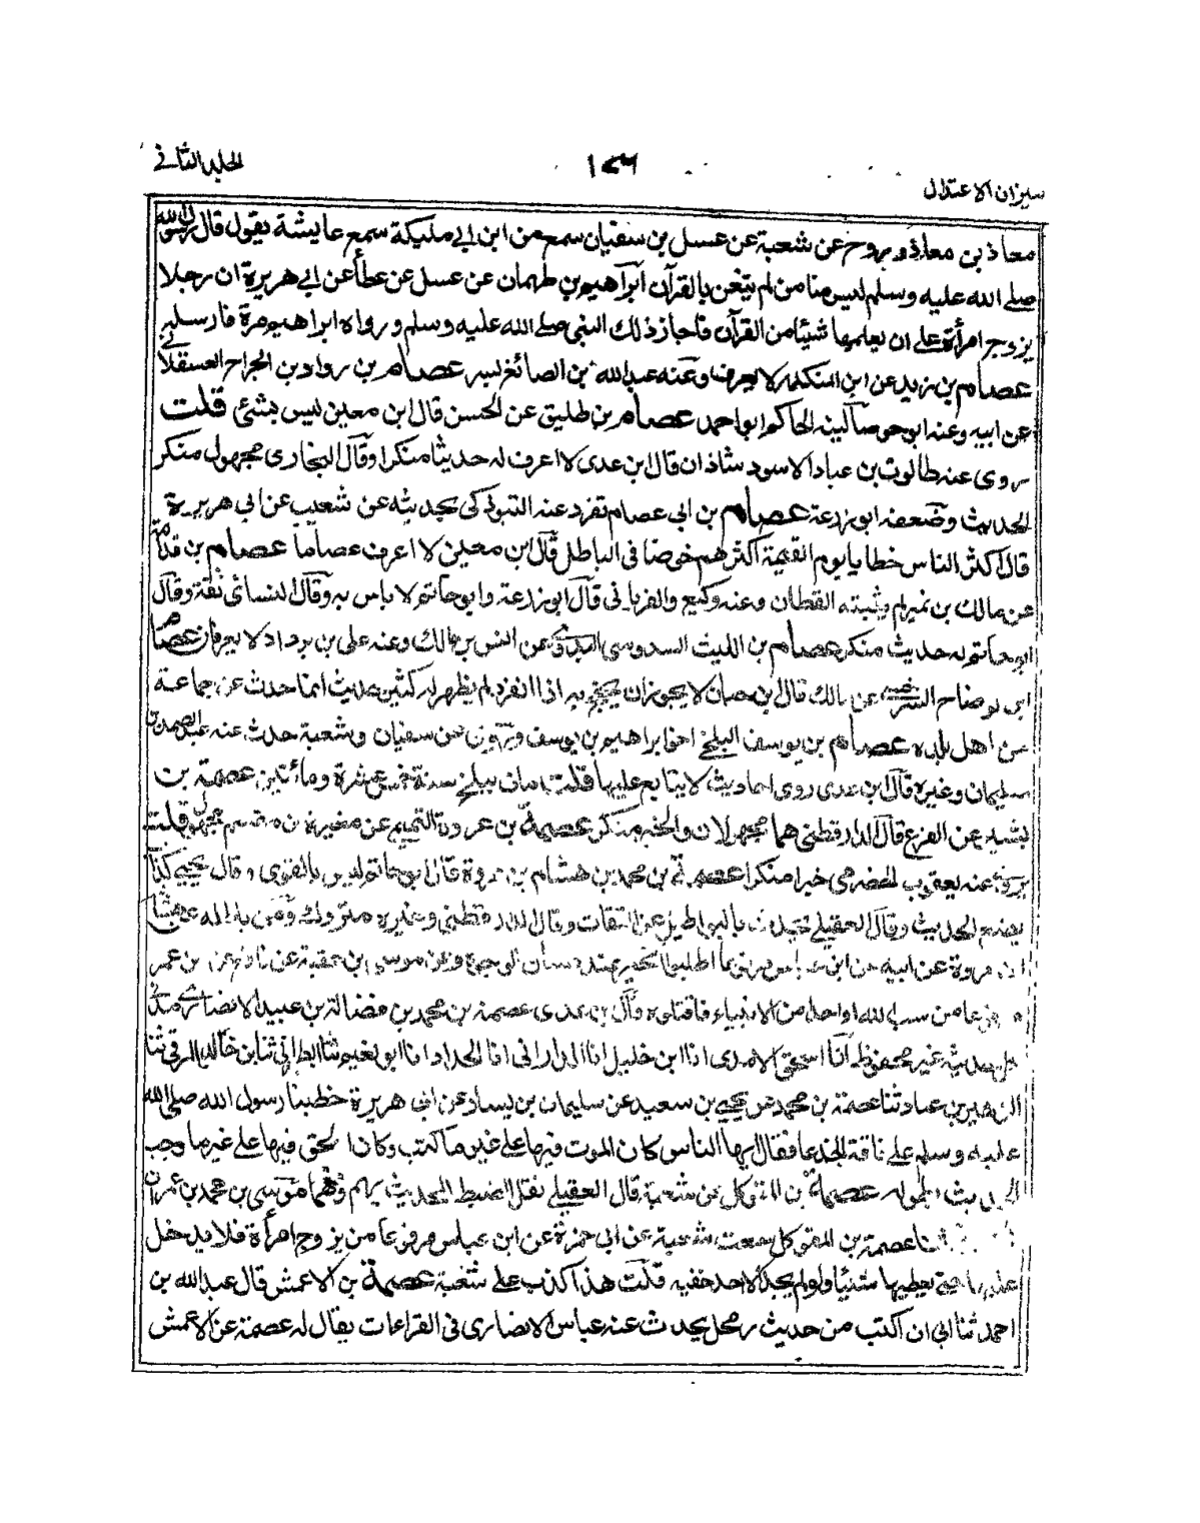 الجلد الثاني
١٧٦
ميزان الاعتدال
معاذ بن معاذ وروح عن شعبة عن عسل بن سفيان سمع من ابن ابي مليكة سمع عايشة يقول قال رسول الله
صلے الله عليه وسلم ليس منا من لم يتغن بالقرآن ابراهيم بن طهمان عن عسل عن عطأ عن ابي هريرة ان رجلا
يزوج امرأة علے ان يعلمها شيئا من القرآن فاجاز ذلك النبي صلے الله عليه وسلم ورواه ابراهيم مرة فارسله
عصام بن زيد عن ابن المنكدر لا يعرف وعنه عبد الله بن الصائغ ليبر عصام بن رواد بن الجراح العسقلاني
عن ابيه وعنه ابو حوصا لينه الحاكم ابو احمد عصام بن طليق عن الحسن قال ابن معين ليس بشئ قلت
روى عنه طالوت بن عباد الاسود شاذان قال بن عدى لا اعرف له حديثا منكرا وقال البخارى مجهول منكر
الحديث وضعفه ابو زرعة عصام بن ابي عصام تفرد عنه التبوذكى بحديثه عن شعيب عن ابي هريرة
قال اكثر الناس خطايا يوم القيمة اكثرهم خوضا في الباطل قال ابن معين لا اعرف عصاما عصام بن قدامة
عن مالك بن نمير لم يثبته القطان وعنه وكيع والفريابى قال ابو زرعة وابو حاتم لا باس به وقال النسائى ثقة وقال
ابو حاتم له حديث منكر عصام بن الليث السدوسى البدوى عن انس بن مالك وعنه على بن يزداد لا يعرفان عصام
ابن بوضاح السرخسى عن مالك قال ابن حبان لا يجوز ان يحتج به اذا انفرد لم يظهر له كثير حديث انما حدث عن جماعة
من اهل بلده عصام بن يوسف البلخى اخو ابراهيم بن يوسف ويروى عن سفيان وشعبة حدث عنه عبد الصمد بن
سليمان وغيره قال بن عدى روى احاديث لا يتابع عليها قلت مات ببلخ سنة خمس عشرة ومائتين عصمة بن
بشير عن الفزع قال الدارقطنى هما مجهولان والخبر منكر عصمة بن عروة التميم عن مغيرة بن مقسم مجهول قلت
يروى عنه يعقوب الحضرمى خبرا منكرا عصمة بن محمد بن هشام بن عروة قال ابو حاتم ليس بالقوى وقال يحيى كذاب
يضع الحديث وقال العقيلے يحدث بالبواطيل عن الثقات وقال الدارقطنى وغيره متروك
بن عروة عن ابيه عن ابن عباس
من سب الله او احدا من الانبياء فاقتلوه وقال بن عدى عصمة بن محمد بن فضالة بن عبيد الانصارے مدنى
كل حديثه غير محفوظ انا اسحق الامدى انا ابن خليل انا الدارانى انا الحداد انا ابو نعيم ثنا الطبرانى ثنا بن خالد الرقى ثنا
الزهير بن عباد ثنا عصمة بن محمد عن يحيي بن سعيد عن سليمان بن يسار عن ابى هريرة خطبنا رسول الله صلى الله
عليه وسلم علے ناقة الجدعا فقال ايها الناس كان الموت فيها علے غيرنا كتب وكان الحق فيها علے غيرنا وجب
الحديث بطوله عصمة بن المتوكل عن شعبة قال العقيلے يقل الضبط للحديث يهم وهما موسى بن محمد بن عمران
ثنا عصمة بن المتوكل سمعت شعبة عن ابى حمزة عن ابن عباس مرفوعا من يزوج امرأة فلا يدخل
عليها حتى يعطيها شيئا ولو لم يجد الا احد خفيه قلت هذا كذب علے شعبة عصمة بن الاعمش قال عبد الله بن
احمد ثنا ابى ان اكتب من حديث رجل يحدث عنه عباس الانصارى فى القراءات يقال له عصمة عن الاعمش